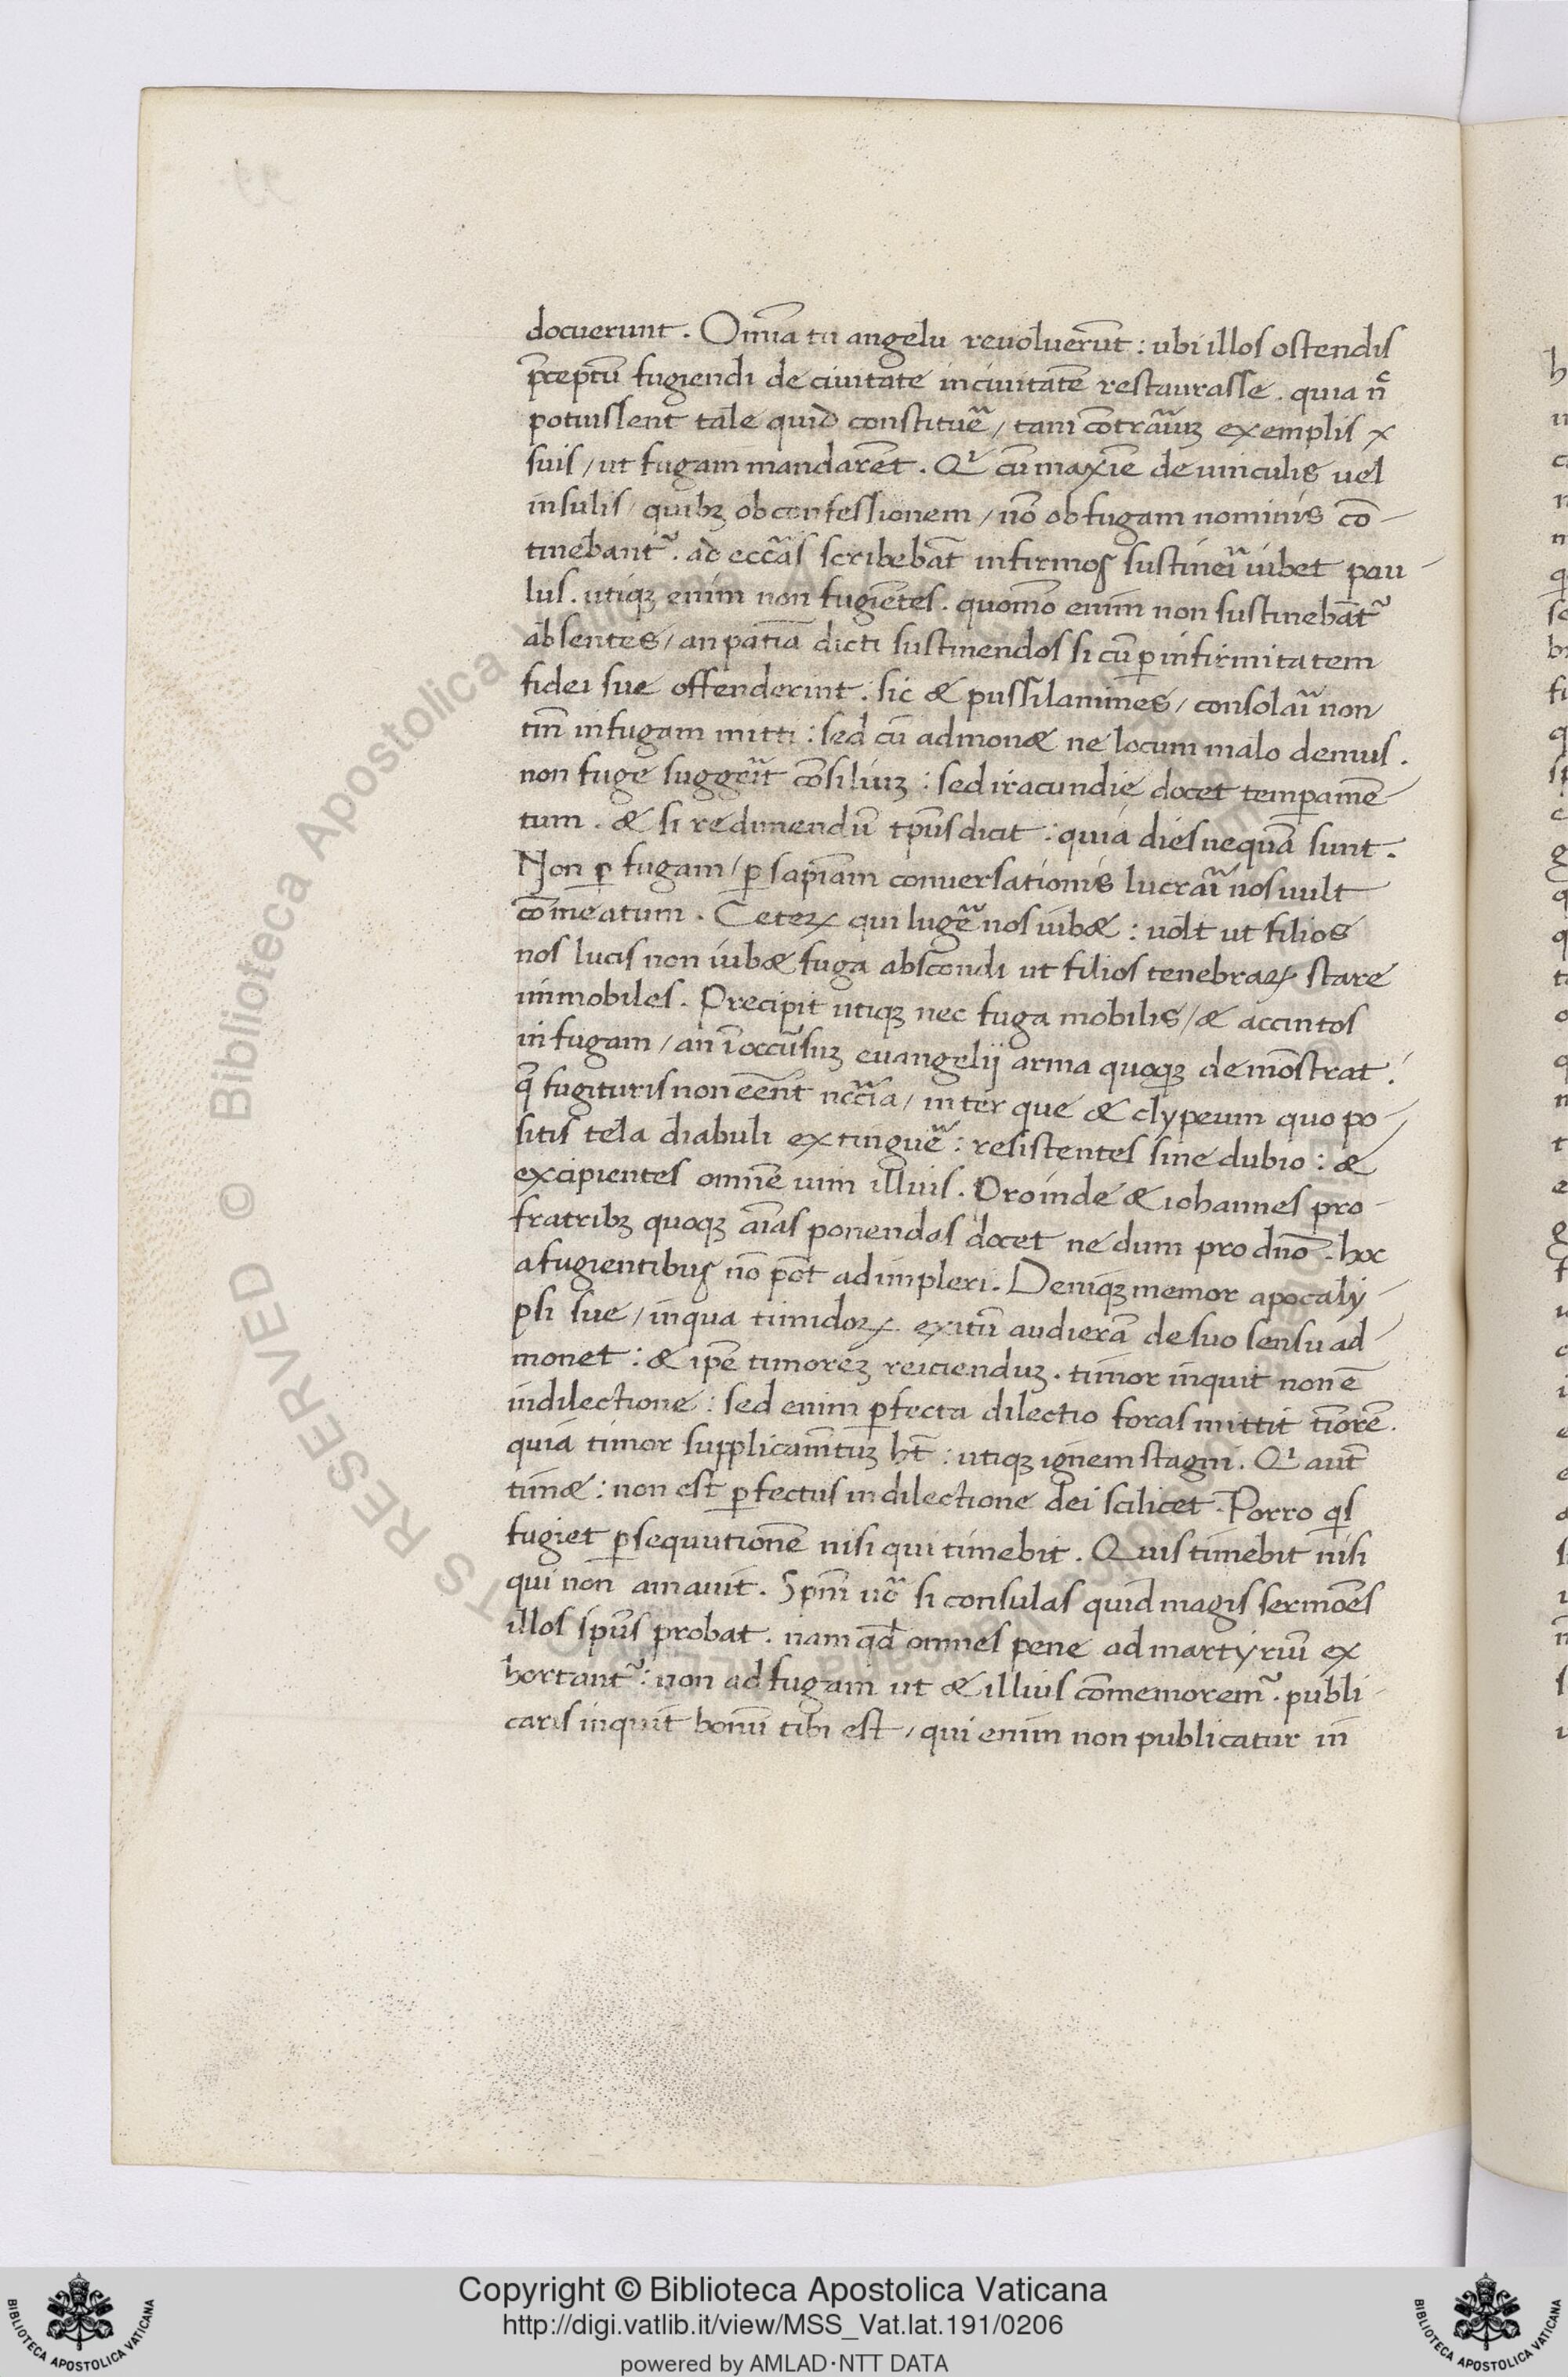 docuerunt. Om̃ia tñ angelu reuoluerũt: ubi illos ostendis
p̃ceptũ fugiendi de ciuitate in ciuitatẽ restaurasse. quia nͨ
potuissent tale quid constituẽ, tam cõtrariuꝫ exemplis
suis, ut fugam mandarẽt. Qͥ cũ maxiẽ de uinculis uel
insulis, quibꝫ ob confessionem, nõ ob fugam nominis cõ-
tinebantᷣ. ad eccl̃as scribebãt infirmos sustineri iubet pau-
lus. utiqꝫ enim non fugiẽtes. quomõ enim non sustinebãtᷣ
absentes, an patiã dicti sustinendos si cũ ꝑ infirmitatem
fidei sue offenderint. sic & pussilanimes, consolari non
tm̃ in fugam mitti: sed cũ admon& ne locum malo demus.
non fuge suggerit cõsiliuꝫ: sed iracundie docet temꝑamẽ-
tum. & si redimendũ tp̃us dicit: quia dies nequã sunt.
Non ꝑ fugam, ꝑ sapiẽam conuersationis lucrari nos uult
cõmeatum. Ceteꝝ qui lugẽ nos iub&: uolt ut filios
nos lucis non iub& fuga abscondi ut filios tenebraꝝ stare
immobiles. Precipit utiqꝫ nec fuga mobilis, & accintos
in fugam, an ĩ occursuꝫ euangelij arma quoqꝫ demõstrat.
q̃ fugituris non eẽnt nccr̃ia, inter que & clypeum quo po-
sitis tela diabuli extinguẽ: resistentes sine dubio: &
excipientes omnẽ uim illius. Proinde & iohannes pro-
fratribꝫ quoqꝫ aĩas ponendas docet ne dum pro dñõ. hoc
a fugientibus nõ põt adimpleri. Deniqꝫ memor apocaly-
psi sue, in qua timidoꝝ exitũ audierã de suo sensu ad-
monet: & ip̃e timoreꝫ reicienduꝫ. timor inquit non ẽ
in dilectione: sed enim ꝑfecta dilectio foras mittit tĩorẽ.
quia timor supplicam̃tuꝫ hꝫ̃: utiqꝫ ignem stagni. Qͥ aut̃
tim&: non est ꝑfectus in dilectione dei scilicet. Porro qͥs
fugiet ꝑsequutionẽ nisi qui timebit. Quis timebit nisi
qui non amauit. Spm̃ uº si consulas quid magis sermoẽs
illos sp̃us probat. nam qd̃ omnes pene ad martyriũ ex
hortantᷣ: non ad fugam ut & illius cõmemoremᷣ. publi-
caris inquit bonũ tibi est, qui enim non publicatur in
Copyright © Biblioteca Apostolica Vaticana
http://digi.vatlib.it/view/MSS_Vat.lat.191/0206
powered by AMLAD·NTT DATA
BIBLIOTECA APOSTOLICA VATICANA
BIBLIOTECA APOSTOLICA VATICANA